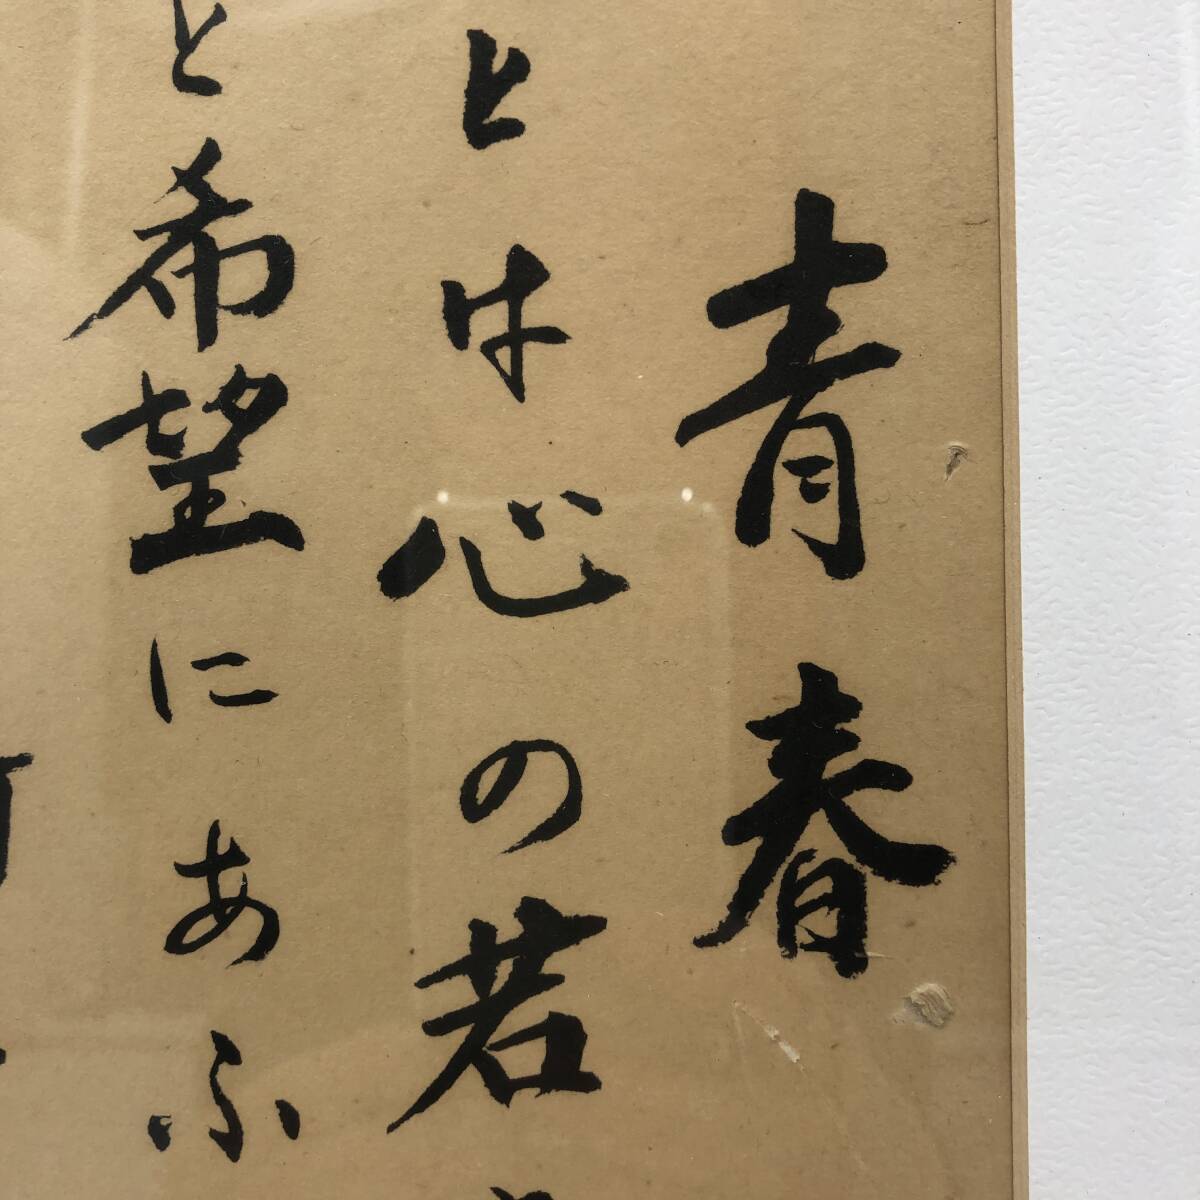 青春
とは心の若
と希望にあふ